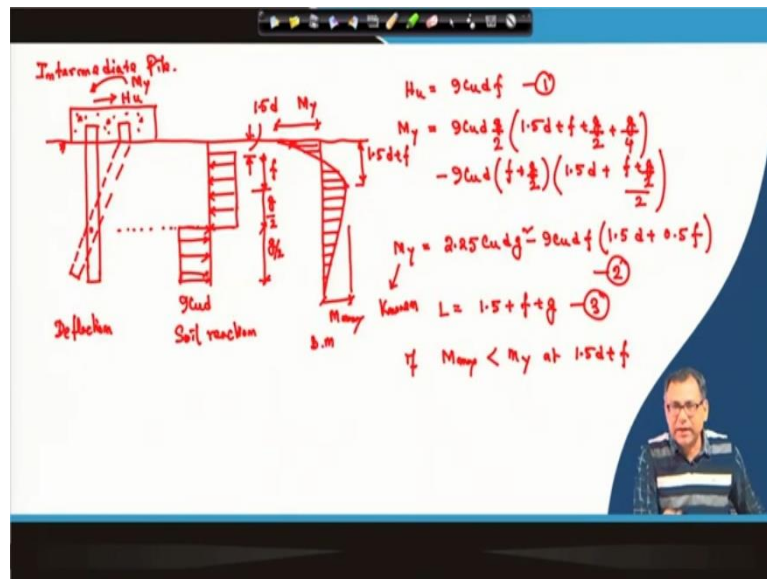 Intermediate Pile.
My
Hu
1.5d
My
1.5d+f
f
g/2
g/2
9cud
Mmax
Deflection
Soil reaction
B.M
Hu = 9cudf -①
My = 9cud g/2 (1.5d + f + g/2 + g/4)
- 9cud (f + g/2) (1.5d + (f + g/2)/2)
My = 2.25cudg² - 9cudf (1.5d + 0.5f)
-②
Known L = 1.5 + f + g -③
if Mmax < My at 1.5d+f